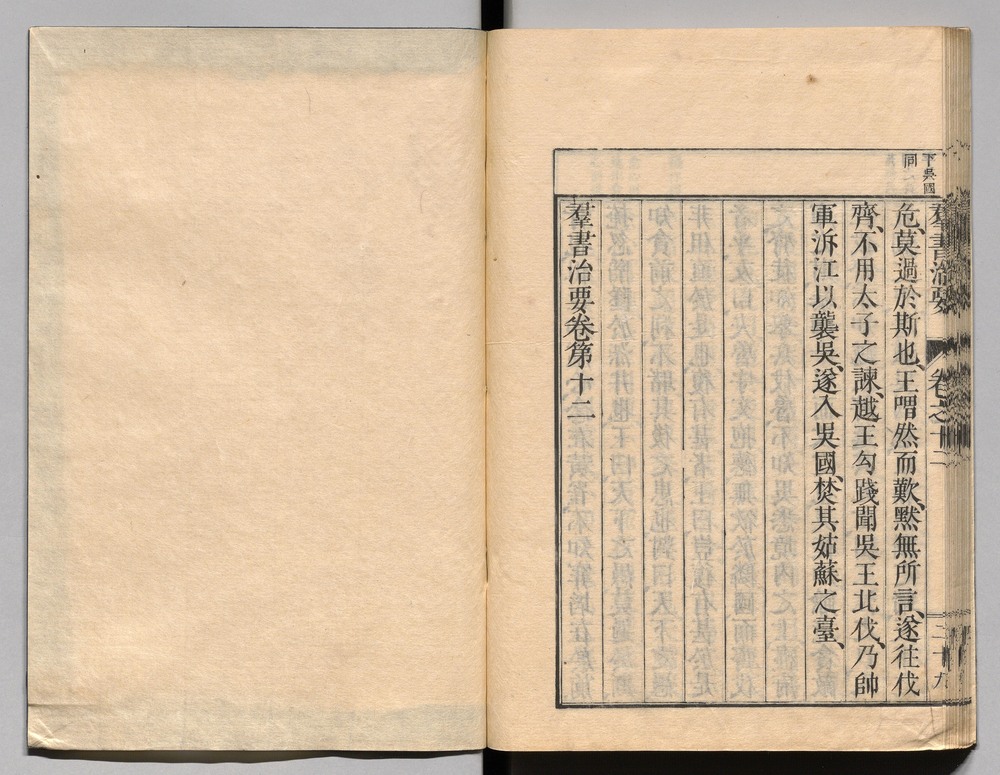 下吳國
同
羣書治要 卷之十二 二十九
危莫過於斯也、王喟然而歎、默無所言、遂往伐
齊、不用太子之諫、越王勾踐聞吳王北伐、乃帥
軍泝江以襲吳、遂入吳國、焚其姑蘇之臺、
羣書治要卷第十二